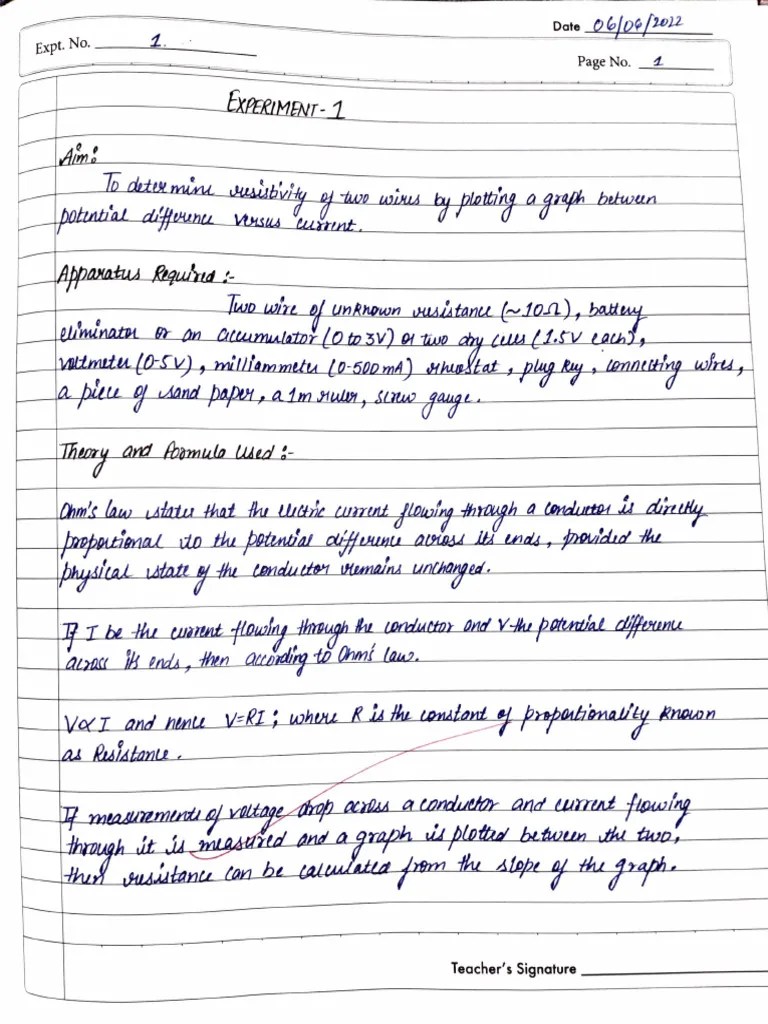 Date 06/06/2022
Expt. No. 1.
Page No. 1
EXPERIMENT-1
Aim:
To determine resistivity of two wires by plotting a graph between
potential difference versus current.
Apparatus Required :-
Two wire of unknown resistance (~10Ω), battery
eliminator or an accumulator (0 to 3V) or two dry cells (1.5V each),
voltmeter (0-5V), milliammeter (0-500mA) rheostat, plug key, connecting wires,
a piece of sand paper, a 1m ruler, screw gauge.
Theory and formula Used :-
Ohm's law states that the electric current flowing through a conductor is directly
proportional to the potential difference across its ends, provided the
physical state of the conductor remains unchanged.
If I be the current flowing through the conductor and V the potential difference
across its ends, then according to Ohm's law.
V∝I and hence V=RI; where R is the constant of proportionality known
as Resistance.
If measurements of voltage drop across a conductor and current flowing
through it is measured and a graph is plotted between the two,
then resistance can be calculated from the slope of the graph.
Teacher's Signature